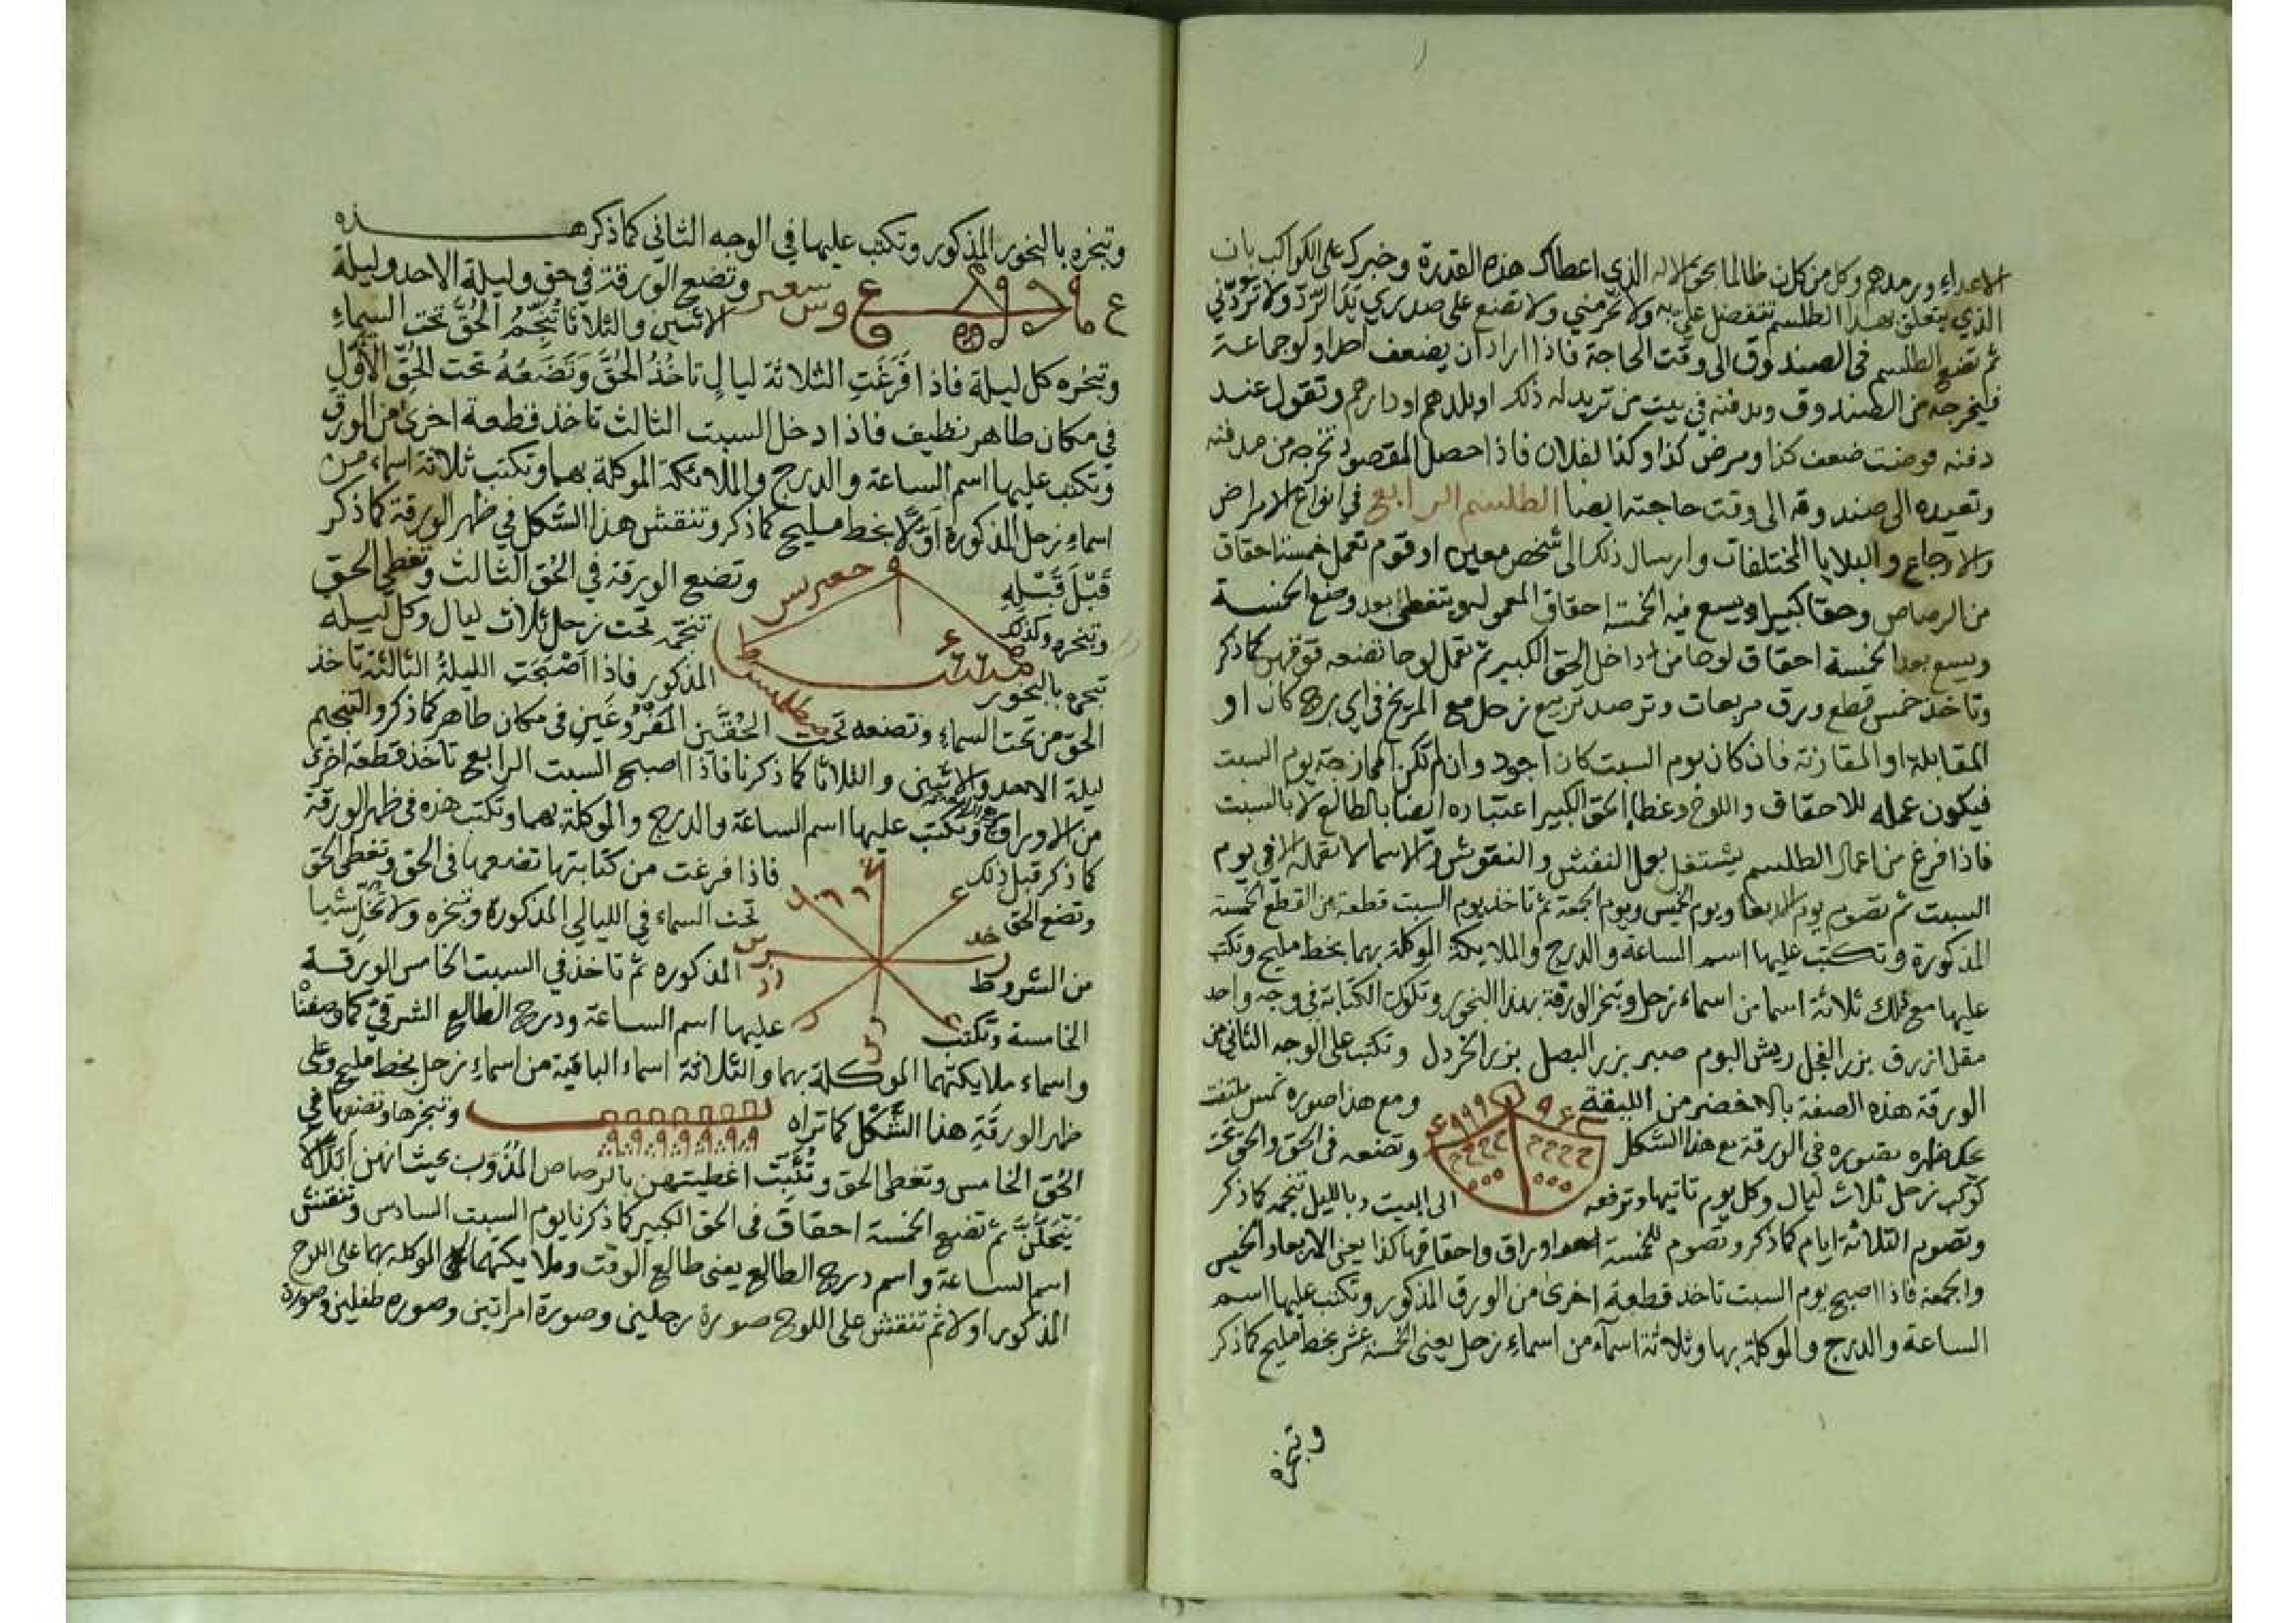 الاعداء ويرمدهم وكل من كان ظالما بحق الاله الذي اعطاك هذه القدرة وخبرك على الكواكب بان
الذي يتعلق بهذا الطلسم تتفضل علي به ولا تحرمني ولا تضع على صدري يد الرد ولا تردني
ثم تضع الطلسم في الصندوق الى وقت الحاجة فاذا اراد ان يضعف احدا ولو جماعة
فليخرجه من الصندوق ويدفنه في بيت من تريد له ذلك او بلدهم او دارهم وتقول عند
دفنه فوضت ضعف كذا ومرض كذا وكذا لفلان فاذا حصل المقصود تخرجه من مدفنه
وتعيده الى صندوقه الى وقت حاجته ايضا الطلسم الرابع في انواع الامراض
والاوجاع والبلايا المختلفات وارسال ذلك الى شخص معين او قوم تعمل خمسة احقاق
من الرصاص وحقا كبيرا ويسع فيه الخمسة احقاق المعمولة وتتغطى بعد وضع الخمسة
ويسع بعد الخمسة احقاق لوحا من داخل الحق الكبير ثم تعمل لوحا تضعه فوقهن كما ذكر
وتاخذ خمس قطع ورق مربعات وترصد تربيع زحل مع المريخ في اي برج كان او
المقابلة او المقارنة فان كان يوم السبت كان اجود وان لم تكن الممازجة يوم السبت
فيكون عمله للاحقاق واللوح وغطاء الحق الكبير اعتباره ايضا بالطالع لا بالسبت
فاذا فرغ من اعمال الطلسم يشتغل بعمل النقش والنقوش والاسما لا تعمله الا في يوم
السبت ثم تصوم يوم الاربعا ويوم الخميس ويوم الجمعة ثم تاخذ يوم السبت قطعة من القطع الخمسة
المذكورة وتكتب عليها اسم الساعة والدرج والملايكة الموكلة بهما بخط مليح وتكتب
عليها مع ذلك ثلاثة اسما من اسماء زحل وتبخر الورقة بهذا البخور وتكون الكتابة في وجه واحد
مقل ازرق بزر الفجل ريش البوم صبر بزر البصل بزر الخردل وتكتب على الوجه الثاني من
الورقة هذه الصفة بالاخضر من الليقة ومع هذا صورة
على ظهره بصورة في الورقة مع هذا الشكل وتضعه في الحق والحق تحت
كوكب زحل ثلاث ليال وكل يوم تاتيها وترفعه الى البيت وبالليل تنجمه كما ذكر
وتصوم الثلاثة ايام كما ذكر وتصوم للخمسة اوراق واحقاقها كذا يعني الاربعاء والخميس
والجمعة فاذا اصبح يوم السبت تاخذ قطعة اخرى من الورق المذكور وتكتب عليها اسم
الساعة والدرج والموكلة بها وثلاثة اسمآء من اسماء زحل يعني الخمسة عشر بخط مليح كما ذكر
وتبخره
وتبخره بالبخور المذكور وتكتب عليها في الوجه الثاني كما ذكر هذه
وتضع الورقة في حق وليلة الاحد وليلة
الاثنين والثلاثا تنجم الحق تحت السماء
وتبخره كل ليلة فاذا فرغت الثلاثة ليال تاخذ الحق وتضعه تحت الحق الاول
في مكان طاهر نظيف فاذا دخل السبت الثالث تاخذ قطعة اخرى من الورق
وتكتب عليها اسم الساعة والدرج والملائكة الموكلة بهما وتكتب ثلاثة اسماء من
اسماء زحل المذكورة اولا بخط مليح كما ذكر وتنقش هذا الشكل في ظهر الورقة كما ذكر
قبل قبله وتضع الورقة في الحق الثالث وتغطي الحق
وتبخره وكذلك تنجمه تحت زحل ثلاث ليال وكل ليلة
تبخره بالبخور المذكور فاذا اصبحت الليلة الثالثة تاخذ
الحق من تحت السماء وتضعه تحت الحقين المفروغين في مكان طاهر كما ذكر والتنجيم
ليلة الاحد والاثنين والثلاثا كما ذكرنا فاذا اصبح السبت الرابع تاخذ قطعة اخرى
من الاوراق وتكتب عليها اسم الساعة والدرج والموكلة بهما وتكتب هذه في ظهر الورقة
كما ذكر قبل ذلك فاذا فرغت من كتابتها تضعها في الحق وتغطي الحق
وتضع الحق تحت السماء في الليالي المذكورة وتبخره ولا تخل شيا
من الشروط المذكورة ثم تاخذ في السبت الخامس الورقة
الخامسة وتكتب عليها اسم الساعة ودرج الطالع الشرقي كما وصفنا
واسماء ملايكتهما الموكلة بهما والثلاثة اسماء الباقية من اسماء زحل بخط مليح وعلى
ظهر الورقة هذا الشكل كما تراه وتبخرها وتضعها في
الحق الخامس وتغطي الحق وتثبت اغطيتهن بالرصاص المذوب بحيث انهن ابدا لا
يتخللن ثم تضع الخمسة احقاق في الحق الكبير كما ذكرنا يوم السبت السادس وتنقش
اسم الساعة واسم درج الطالع يعني طالع الوقت وملايكتهما الموكلة بهما على اللوح
المذكور اولا ثم تنقش على اللوح صورة رجلين وصورة امراتين وصورة طفلين وصورة